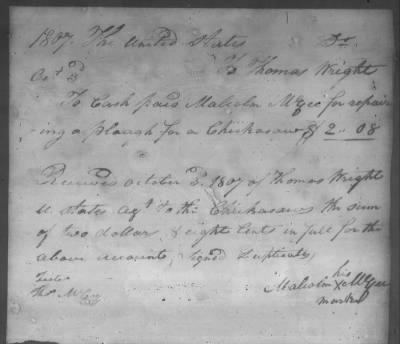 1807. The United States Dr.
Oct. 3d To Thomas Wright
To Cash paid Malcolm McGee for repair
ing a plough for a Chickasaw $ 2..08
Received October 3d, 1807 of Thomas Wright
U. States agt to the Chickasaws the sum
of two dollar, & eight Cents in full for the
above account, Signed Duplicate,
Teste
Thos. McCoy
his
Malcolm X McGee
marked